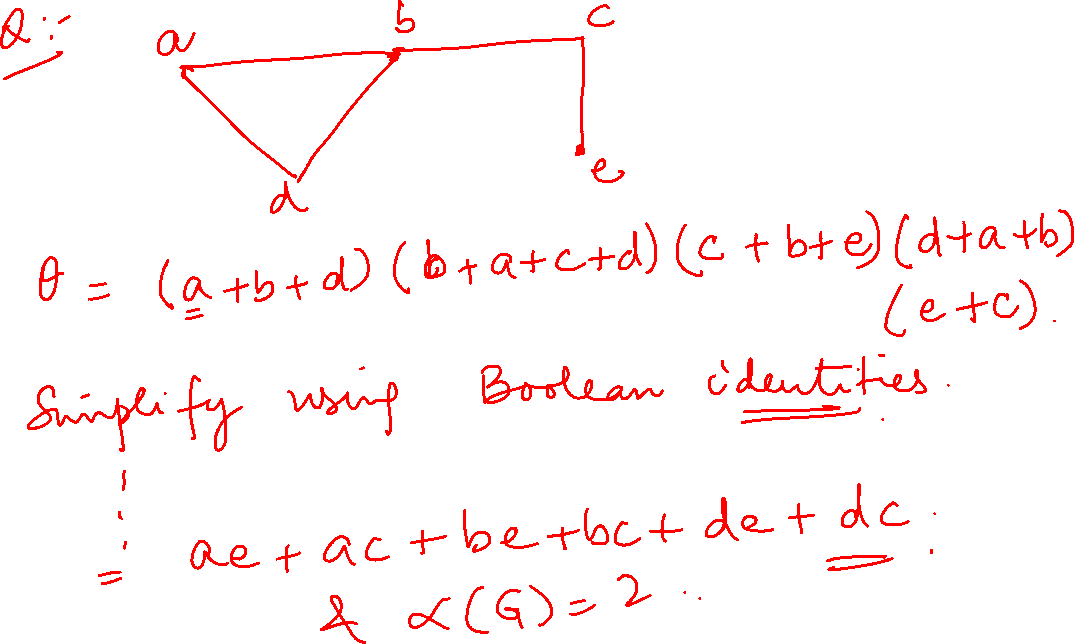 Q :-
a b c
d e
θ = (a+b+d) (b+a+c+d) (c+b+e) (d+a+b)
(e+c).
Simplify using Boolean identities.
= ae + ac + be + bc + de + dc.
& α(G) = 2 ..